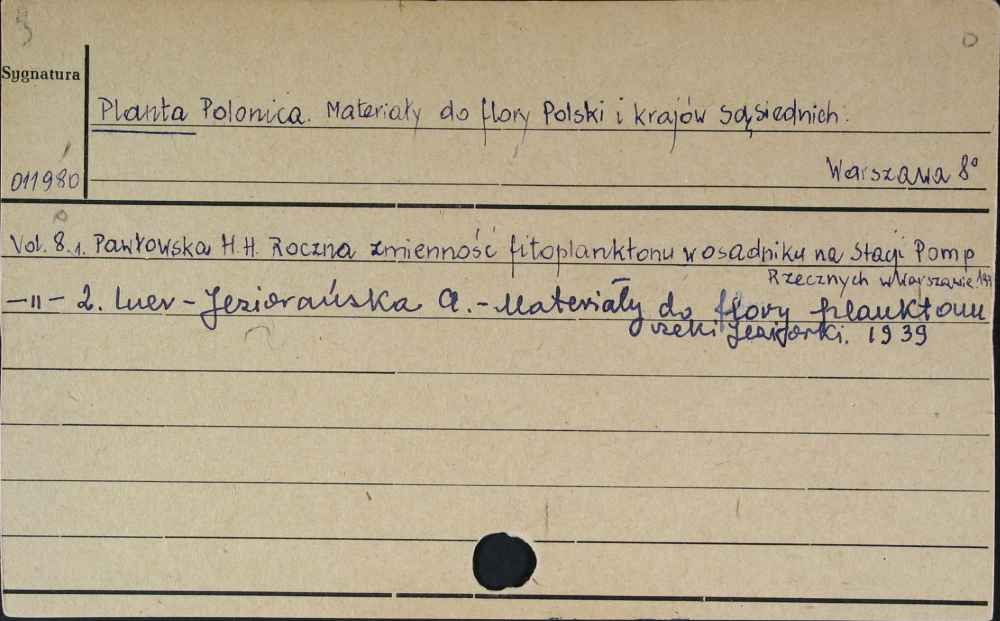 Sygnatura
Planta Polonica. Materiały do flory Polski i krajów sąsiednich.
011980
Warszawa 8°
Vol. 8.1. Pawłowska H.H. Roczna zmienność fitoplanktonu w osadniku na Stacji Pomp
Rzecznych w Warszawie
—"— 2. Luer-Jeziorańska A. - Materiały do flory planktonu
rzeki Jeziorki. 1939